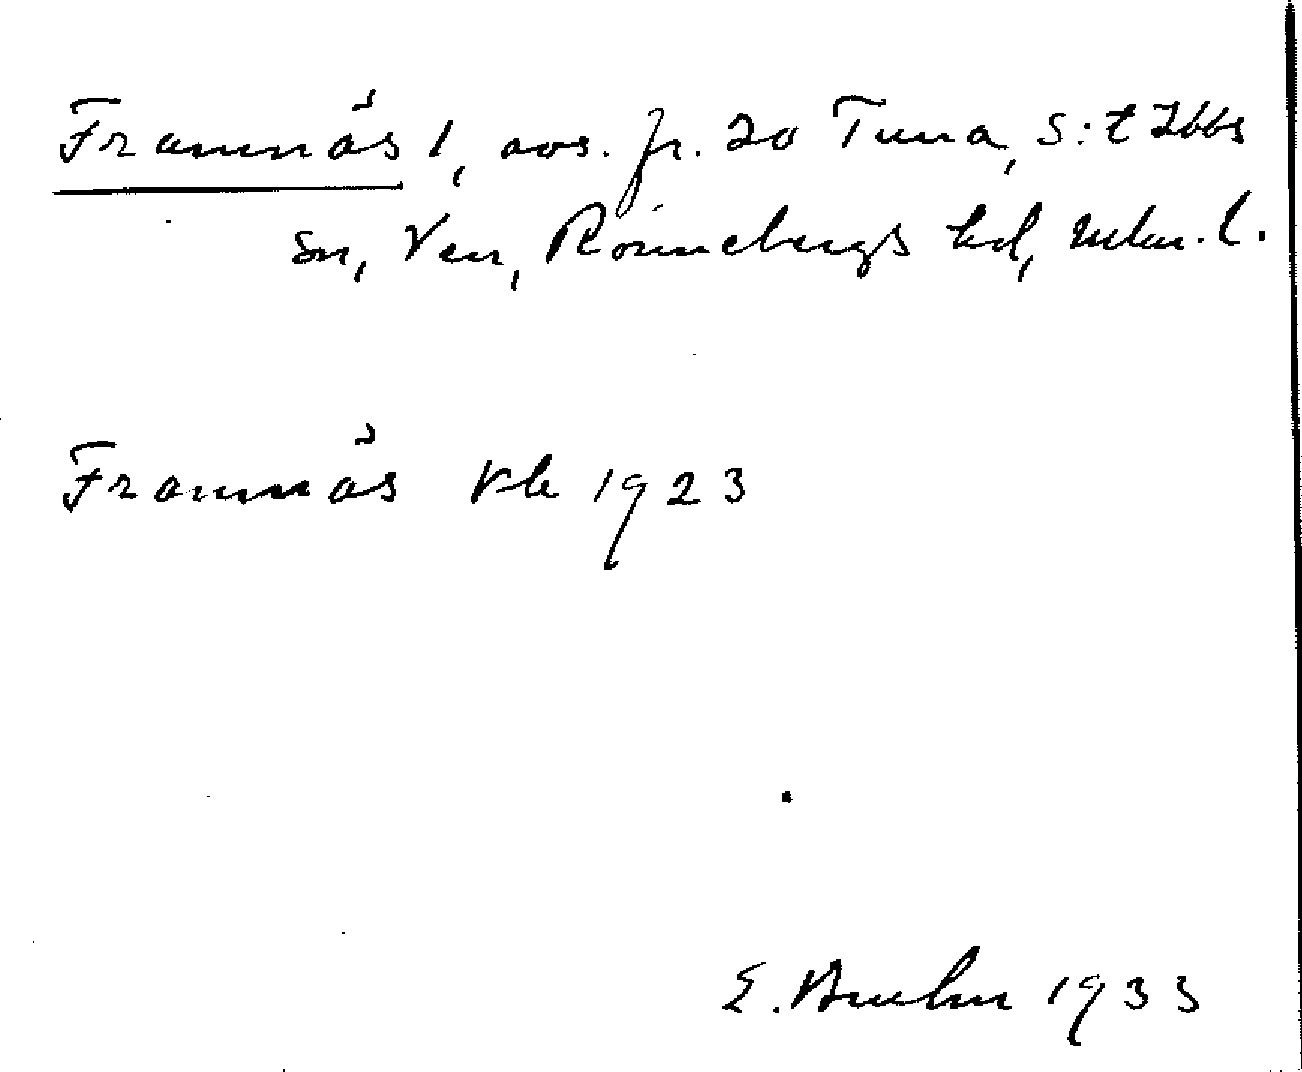 Framnäs 1, avs. fr. 20 Tuna, S:t Ibbs
sn, Ven, Rönnebergs hd, Mlm. l.
Framnäs Vb 1923
E. Bruhn 1933